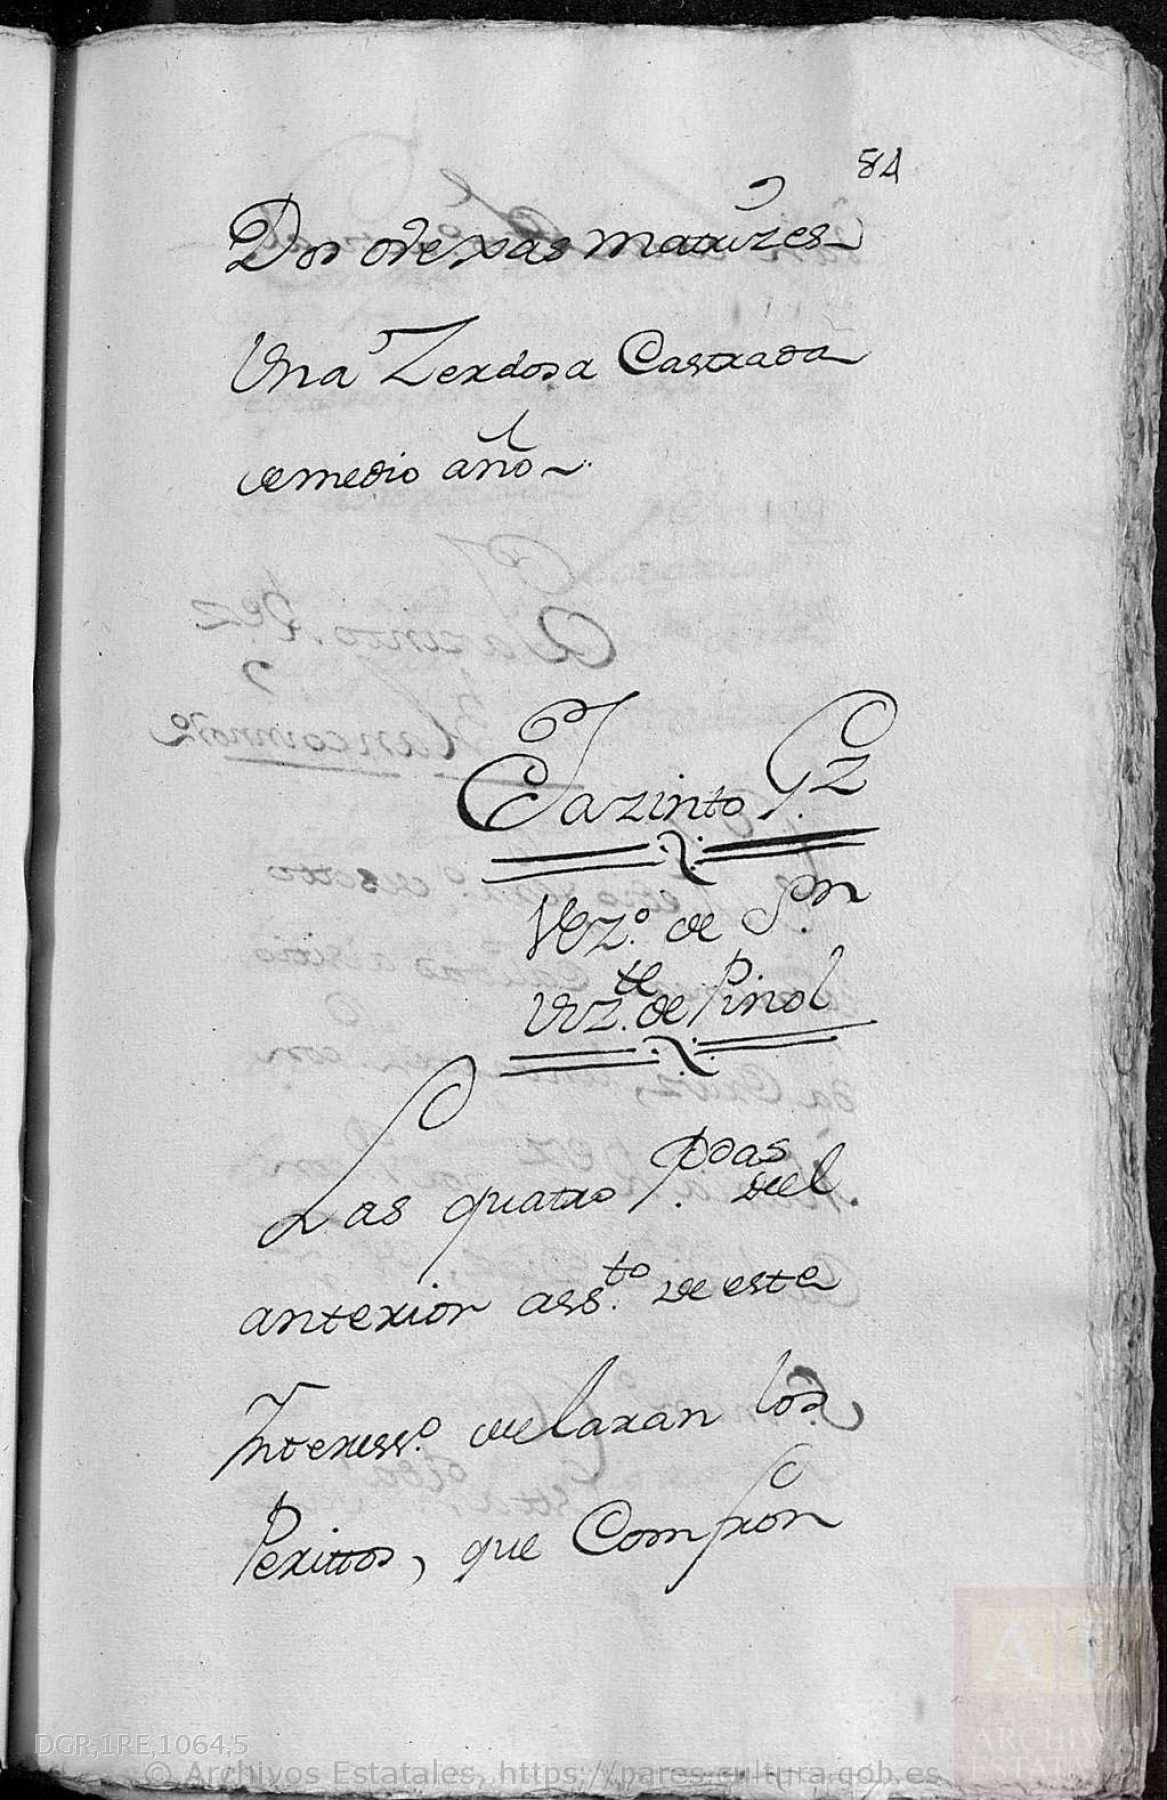 84
Dos ovexas matrizes
Una Zerdosa Castrada
de medio año
Jazinto Gz
Vezº. de Sn
Vizte. de Pinol
Las quatro Pdas. del
anterior assto. de este
Interessº. delaran los
Perittos, que Compron
DGR,1RE,1064,5
© Archivos Estatales, https://pares.cultura.gob.es
ARCHIVOS
ESTATALES